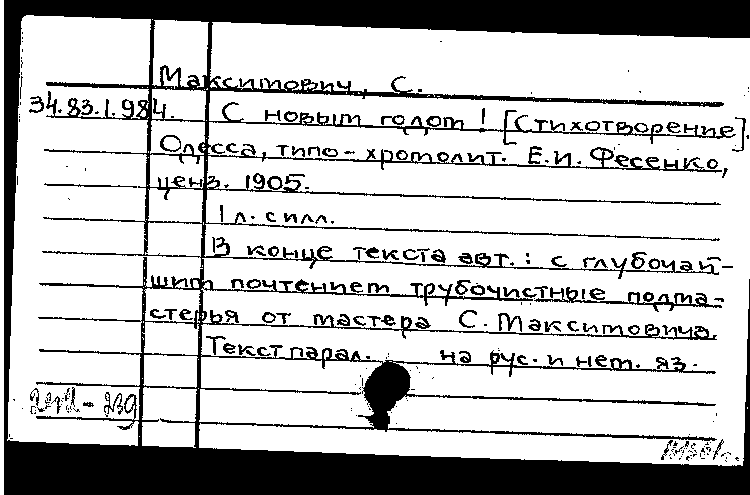 Максимович, С.
34.83.1.984. С новым годом! [Стихотворение].
Одесса, типо-хромолит. Е.И. Фесенко,
ценз. 1905.
1 л. с илл.
В конце текста авт.: с глубочай-
шим почтением трубочистные подма-
стерья от мастера С. Максимовича.
Текст парал. на рус. и нем. яз.